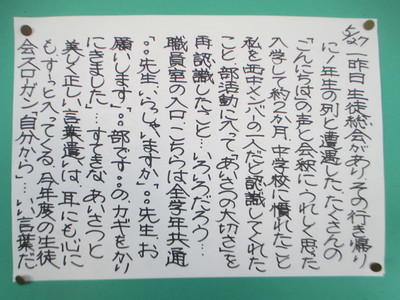 5/27 一昨日、生徒総会があり、その行き帰り
に1年生の列と遭遇した。たくさんの
「こんにちは」の声と会釈にうれしく思った
入学して約2か月、中学校に慣れたこと
私を西中メンバーの一人だと認識してくれた
こと、部活動に入って「あいさつの大切さ」を
再認識したこと…いろいろだろう…
職員室の入口、こちらは全学年共通
「○○先生、いらっしゃいますか」「○○先生、お
願いします」「○○部です。○○のカギをかり
にきました」…すてきな「あいさつ」と
美しく正しい言葉遣いは、耳にも心に
もすーっと入ってくる。今年度の生徒
会スローガン「自分から」…いい言葉だ